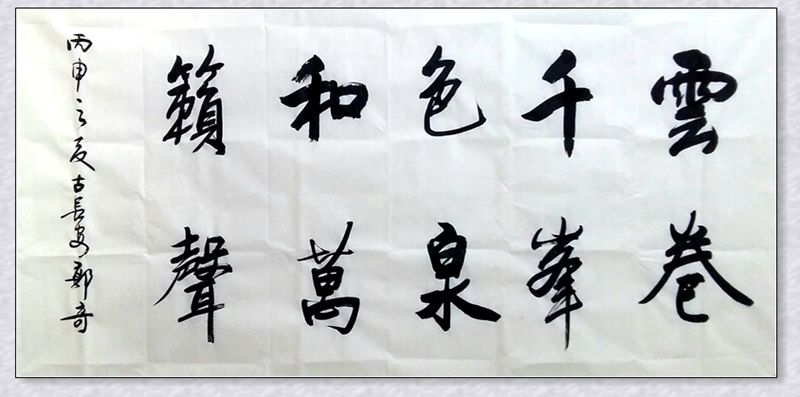 雲卷
千峯
色泉
和萬
籟聲
丙申之夏古長安鄭奇